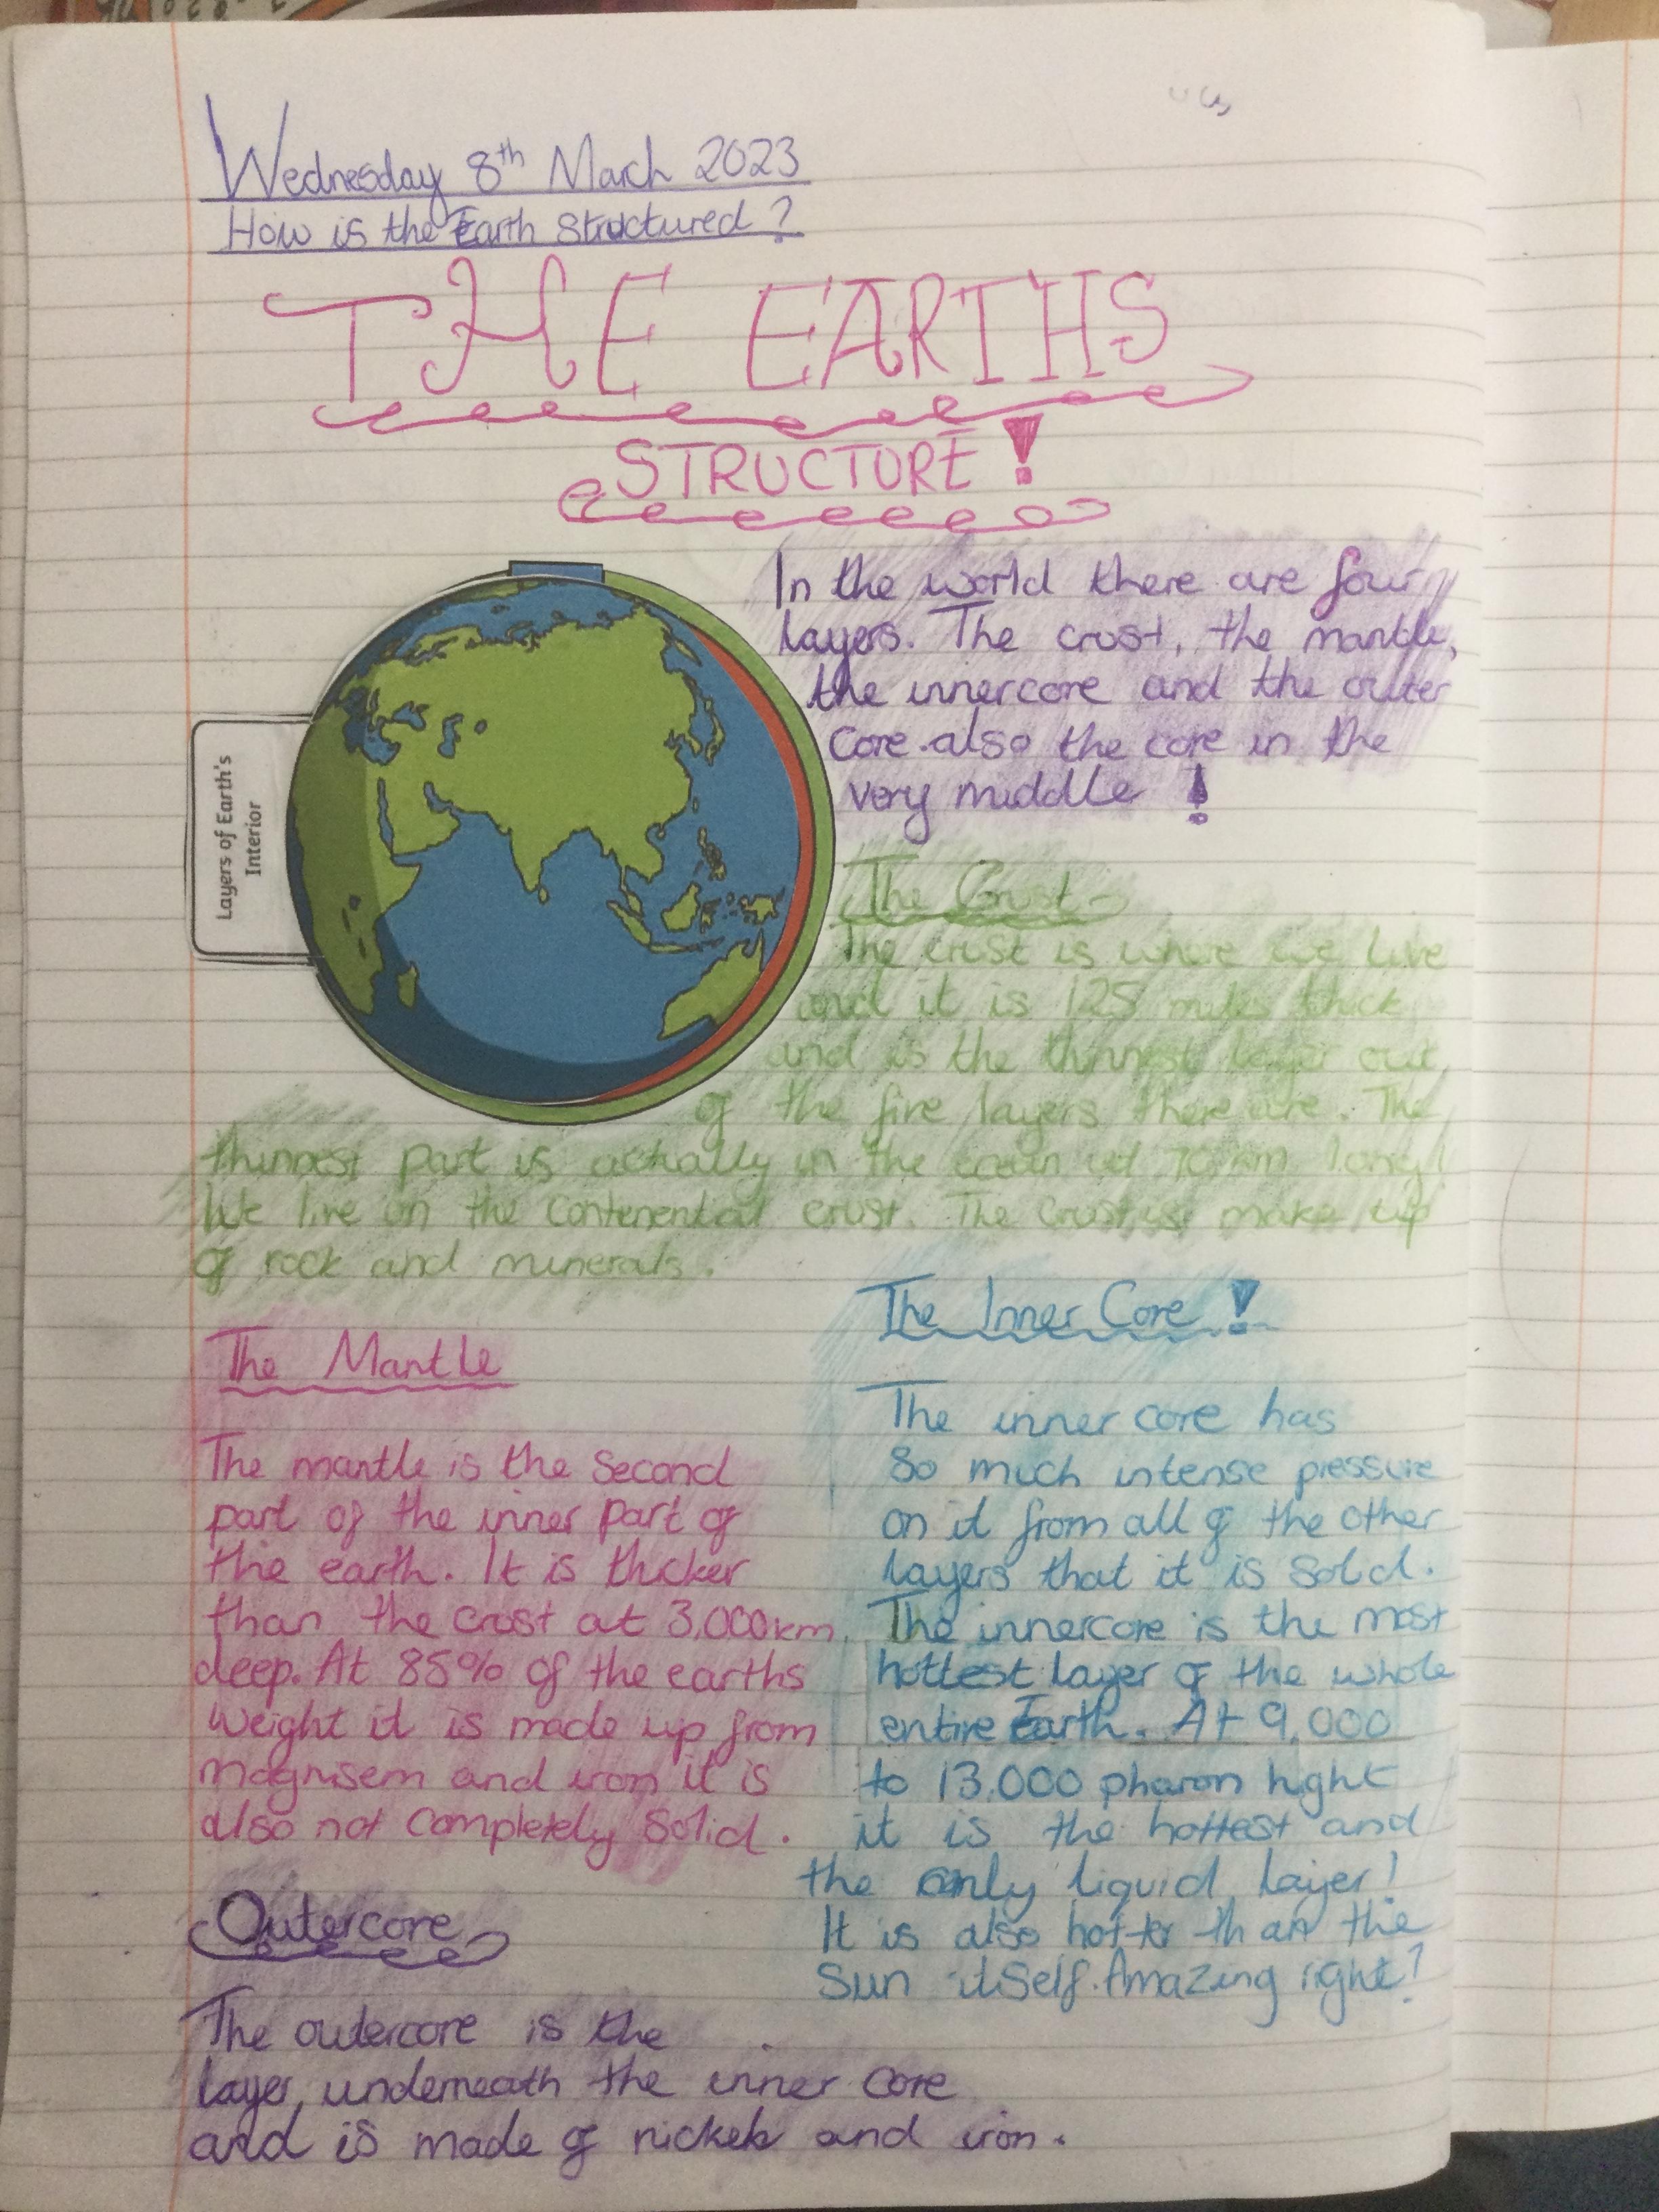 Wednesday 8th March 2023
How is the Earth structured?
THE EARTHS
STRUCTURE!
Layers of Earth's
Interior
In the world there are four
layers. The crust, the mantle,
the innercore and the outer
core. also the core in the
very middle !
The Crust-
The crust is where we live
and it is 125 miles thick
and is the thinnest layer out
of the five layers there are. The
thinnest part is actually in the ocean at 70 km long!
We live on the contenential crust. The crust is make up
of rock and minerals.
The Mantle
The mantle is the second
part of the inner part of
the earth. It is thicker
than the crust at 3,000km
deep. At 85% of the earths
weight it is made up from
magnisem and iron it is
also not completely solid.
The Inner Core !
The inner core has
so much intense pressure
on it from all of the other
layers that it is solid.
The innercore is the most
hottest layer of the whole
entire Earth. At 9,000
to 13.000 pharon hight
it is the hottest and
the only liquid layer!
It is also hotter than the
sun itself. Amazing right?
Outercore
The outercore is the
layer underneath the inner core
and is made of nickel and iron.